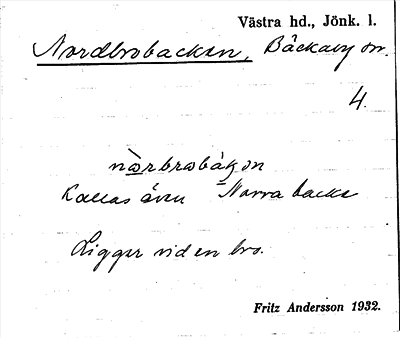 Västra hd., Jönk. l.
Nordbrobacken, Bäckaby sn.
4.
Kallas även Norra backe
Ligger vid en bro.
Fritz Andersson 1932.